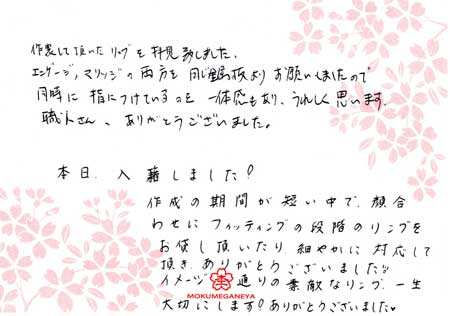 作製して頂いたリングを拝見致しました。
エンゲージ、マリッジの両方を同じ金属板よりお願いしましたので
同時に指につけているのも一体感もあり、うれしく思います。
職人さん、ありがとうございました。
本日、入籍しました!
作成の期間が短い中で、顔合
わせにフィッティングの段階のリングを
お貸し頂いたり、細やかに対応して
頂き、ありがとうございました!!
イメージ通りの素敵なリング、一生
大切にします!ありがとうございました♥
MOKUMEGANEYA